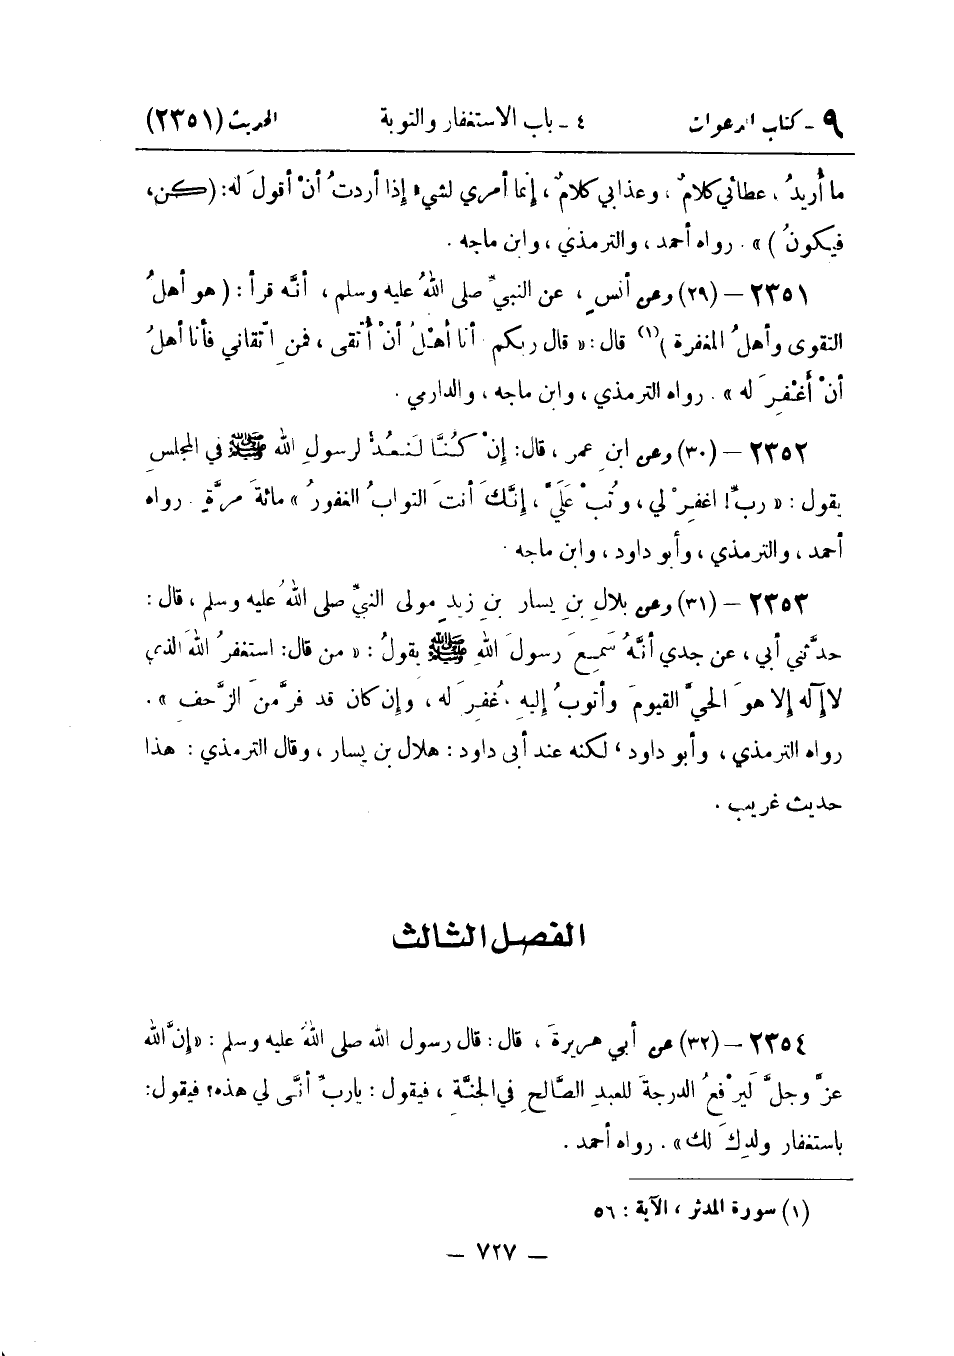 ٩ - كتاب الدعوات ٤ - باب الاستغفار والتوبة الحديث (٢٣٥١)
ما أُريدُ ، عطائي كلامٌ ، وعذابي كلامٌ ، إنما أمري لشيء إذا أردتُ أنْ أقولَ له: (كن،
فيكونُ) » . رواه أحمد ، والترمذي ، وابن ماجه .
٢٣٥١ – (٢٩) وعن أنسٍ ، عن النبيِّ صلى اللهُ عليه وسلم ، أنَّه قرأ : ( هو أهلُ
التقوى وأهلُ المغفرة )(١) قال : « قال ربكم أنا أهْلُ أنْ أُتَّقى ، فمنِ اتّقاني فأنا أهلُ
أنْ أَغْفِرَ له » . رواه الترمذي ، وابن ماجه ، والدارمي .
٢٣٥٢ – (٣٠) وعن ابنِ عمر ، قال: إنْ كُنَّا لَنعُدُّ لرسولِ الله ﷺ في المجلسِ
يقول : « ربِّ! اغفِرْ لي ، وتُبْ عَلَيَّ ، إنَّكَ أنتَ التوابُ الغفورُ » مائةَ مرَّةٍ . رواه
أحمد ، والترمذي ، وأبو داود ، وابن ماجه .
٢٣٥٣ – (٣١) وعن بلالِ بنِ يسار بنِ زيدٍ مولى النبيِّ صلى اللهُ عليه وسلم ، قال :
حدَّثني أبي ، عن جدي أنَّهُ سَمِعَ رسولَ اللهِ ﷺ يقولُ : « من قال: استغفرُ اللهَ الذي
لا إله إلا هوَ الحيَّ القيومَ وأتوبُ إليهِ ، غُفِرَ له ، وإن كان قد فرَّ منَ الزَّحفِ » .
رواه الترمذي ، وأبو داود ، لكنه عند أبي داود : هلال بن يسار ، وقال الترمذي : هذا
حديث غريب .
الفصل الثالث
٢٣٥٤ – (٣٢) عن أبي هريرةَ ، قال : قال رسول الله صلى اللهُ عليه وسلم : « إنَّ الله
عزَّ وجلَّ لَيرْفعُ الدرجةَ للعبدِ الصَّالحِ في الجنَّةِ ، فيقول : يا ربِّ أنَّى لي هذه؟ فيقول:
باستغفار ولدِكَ لك » . رواه أحمد .
(١) سورة المدثر ، الآية : ٥٦
– ٧٢٧ –